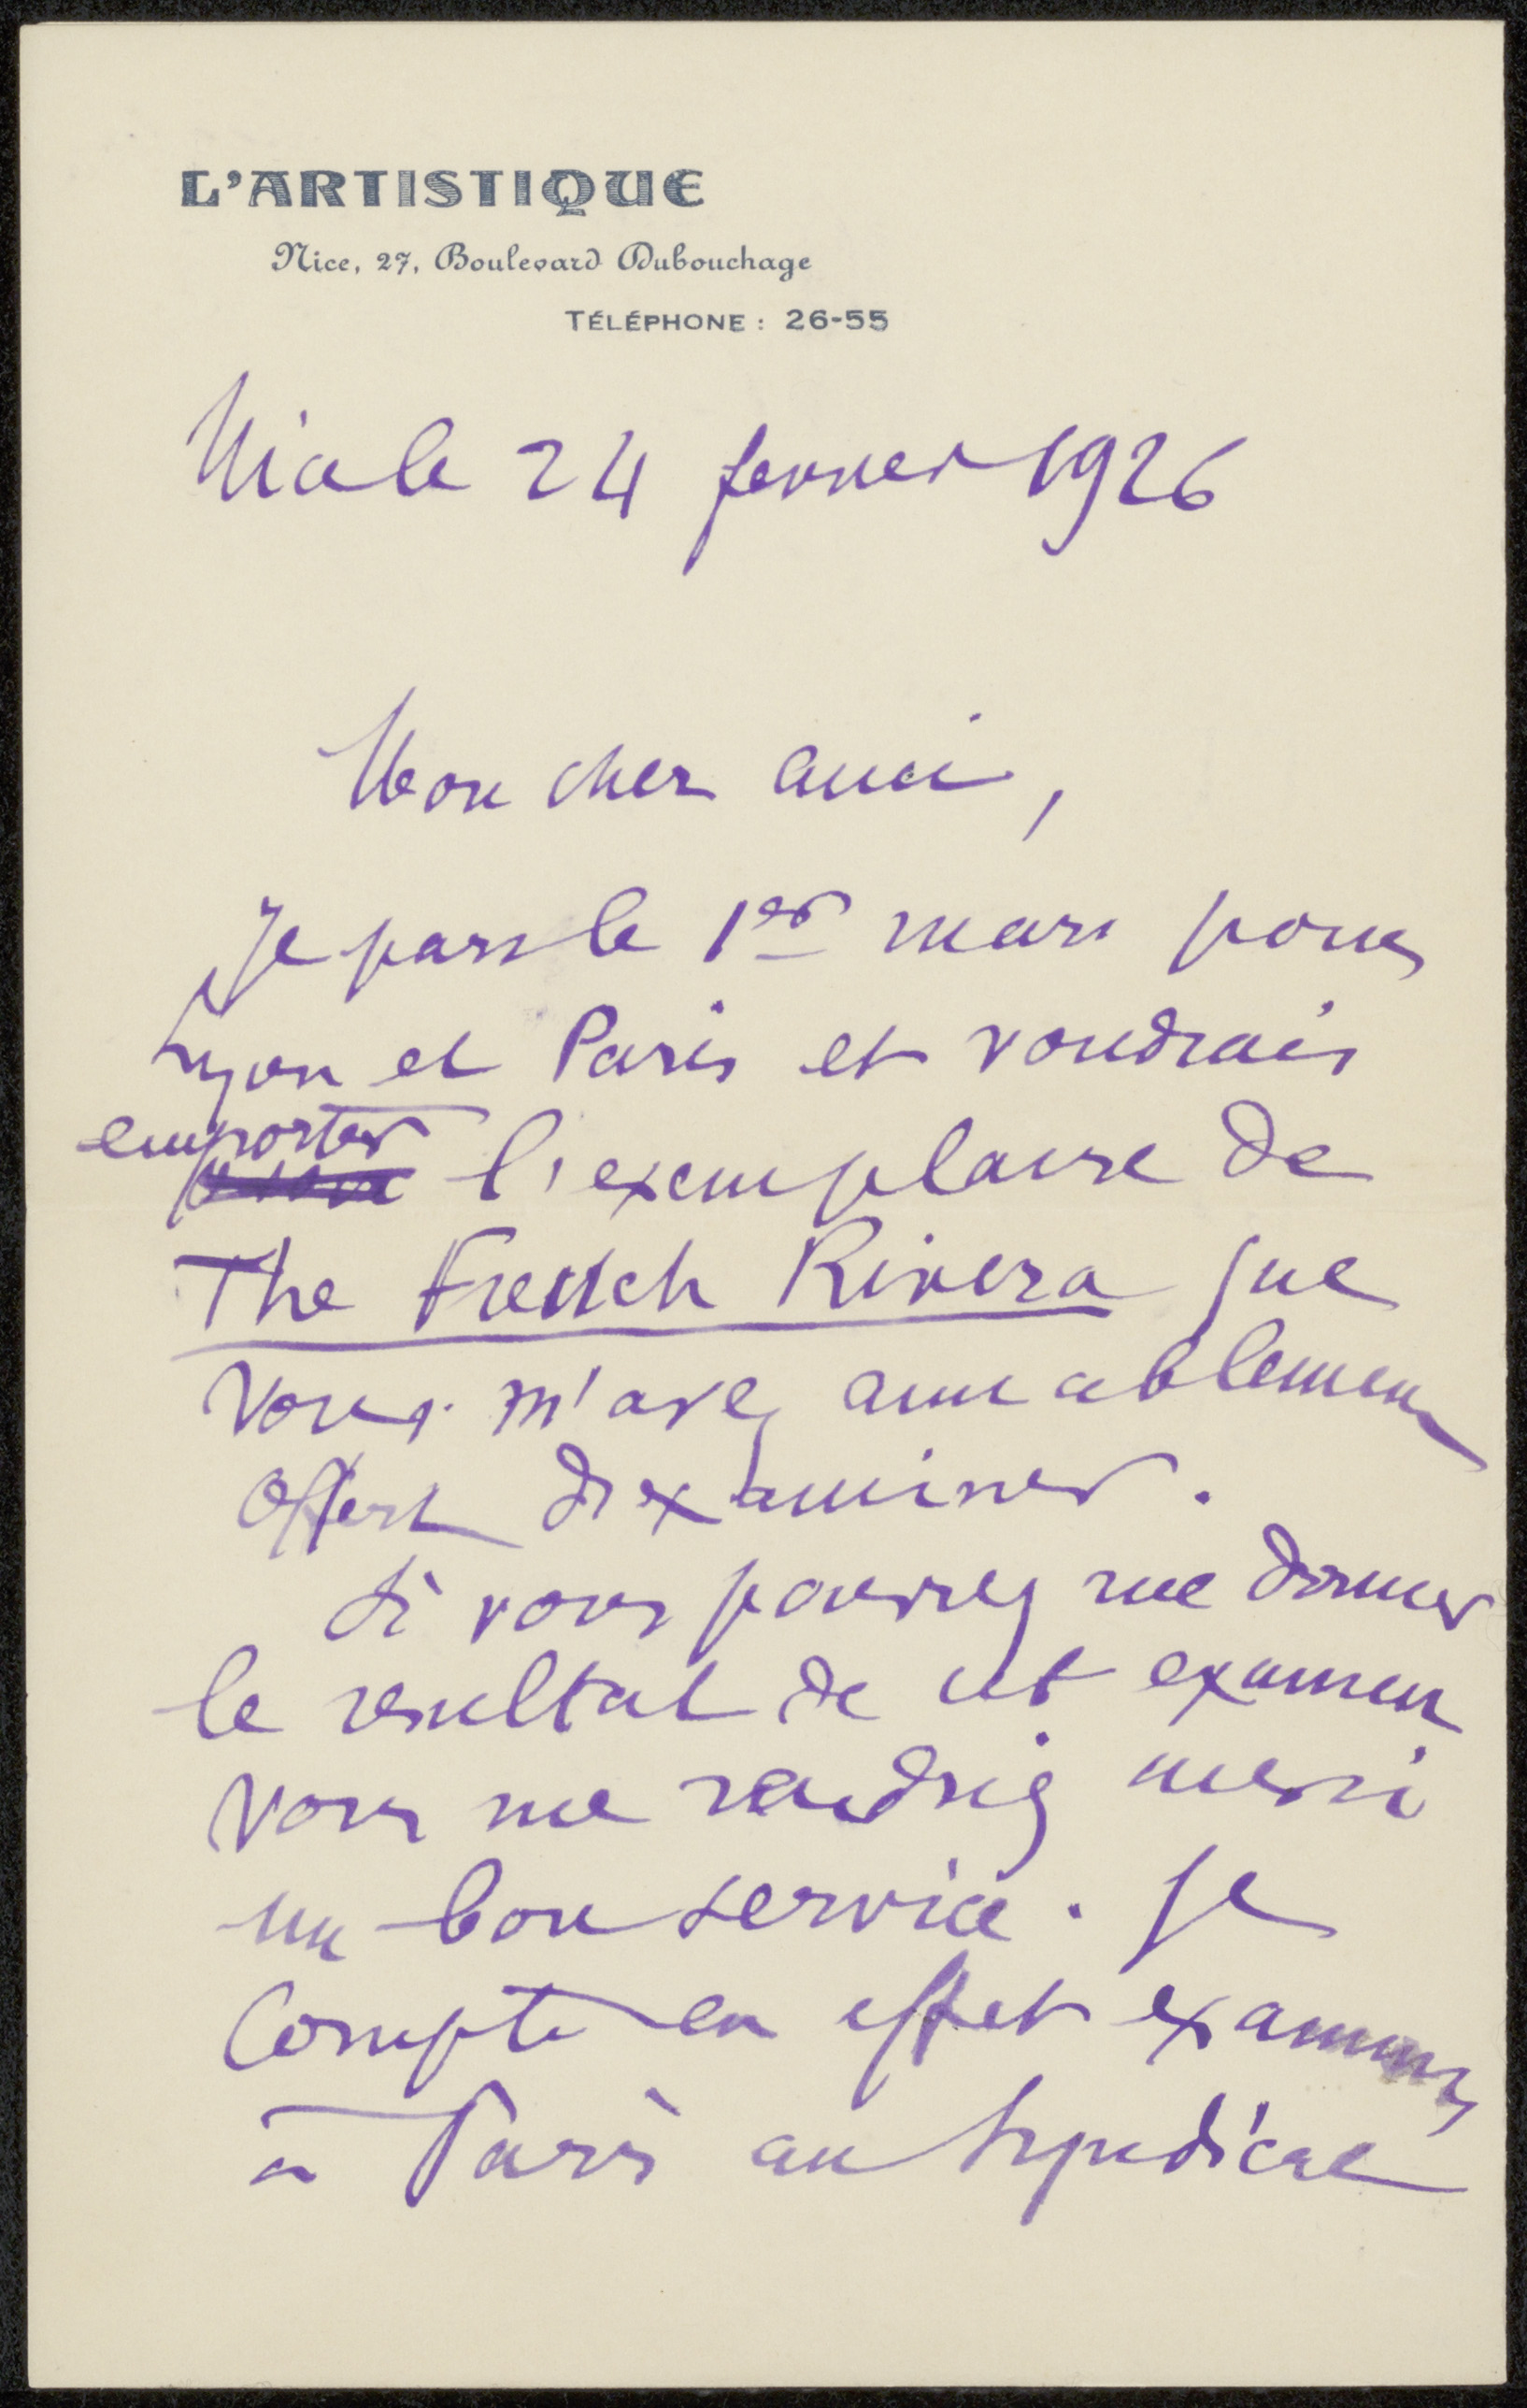 L'ARTISTIQUE
Nice, 27, Boulevard Dubouchage
TÉLÉPHONE : 26-55
Nice le 24 fevrier 1926
Mon cher ami,
Je pars le 1er mars pour
Lyon et Paris et voudrais
emporter
l'exemplaire de
The French Rivera que
vous m'avez aimablement
offert d'examiner.
Si vous pouvez me donner
le resultat de cet examen
vous me rendriez merci
un bon service. Je
compte en effet examiner
à Paris au Syndicat